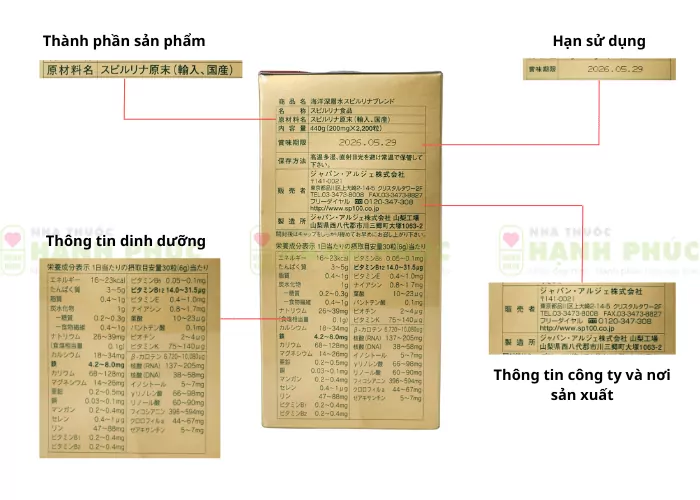 Thành phần sản phẩm
Hạn sử dụng
原材料名 スピルリナ原末（輸入、国産）
賞味期限 2026.05.29
商品名 海洋深層水スピルリナブレンド
名称 スピルリナ食品
原材料名 スピルリナ原末（輸入、国産）
内容量 440g(200mg×2,200粒)
賞味期限 2026.05.29
保存方法 高温多湿、直射日光を避け常温で保管して下さい。
販売者 ジャパン・アルジェ株式会社
〒141-0021
東京都品川区上大崎2-14-5 クリスタルタワー2F
TEL.03-3473-8008 FAX.03-3473-8827
フリーダイヤル 0120-347-308
http://www.sp100.co.jp
製造所 ジャパン・アルジェ株式会社 山梨工場
山梨県西八代郡市川三郷町大塚1063-2
NHÀ THUỐC
HẠNH PHÚC
Thông tin dinh dưỡng
栄養成分表示 1日当たりの摂取目安量30粒(6g)当たり
エネルギー 16~23kcal
たんぱく質 3~5g
脂質 0.4~1g
炭水化物 1g
ー糖質 0.2~0.3g
ー食物繊維 0.4~1g
ナトリウム 26~39mg
(食塩相当量 0.1g)
カルシウム 18~34mg
鉄 4.2~8.0mg
カリウム 68~128mg
マグネシウム 14~26mg
亜鉛 0.2~0.5mg
銅 0.03~0.1mg
マンガン 0.2~0.4mg
セレン 0.4~1μg
リン 47~88mg
ビタミンB1 0.2~0.4mg
ビタミンB2 0.2~0.4mg
ビタミンB6 0.05~0.1mg
ビタミンB12 14.0~31.5μg
ビタミンE 0.4~1.0mg
ナイアシン 0.8~1.7mg
葉酸 10~23μg
パントテン酸 0.1mg
ビオチン 2~4μg
ビタミンK 75~140μg
β-カロテン 6,720~10,083μg
核酸(RNA) 137~205mg
核酸(DNA) 38~58mg
イノシトール 5~7mg
γリノレン酸 66~98mg
リノール酸 60~90mg
フィコシアニン 396~594mg
クロロフィルa 44~67mg
ゼアキサンチン 5~7mg
販売者 ジャパン・アルジェ株式会社
〒141-0021
東京都品川区上大崎2-14-5 クリスタルタワー2F
TEL.03-3473-8008 FAX.03-3473-8827
フリーダイヤル 0120-347-308
http://www.sp100.co.jp
製造所 ジャパン・アルジェ株式会社 山梨工場
山梨県西八代郡市川三郷町大塚1063-2
Thông tin công ty và nơi
sản xuất